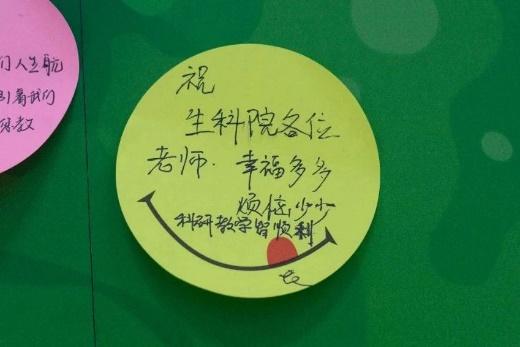 们人生航
引着我们
祝
生科院各位
老师. 幸福多多
烦恼少少
科研教学皆顺利